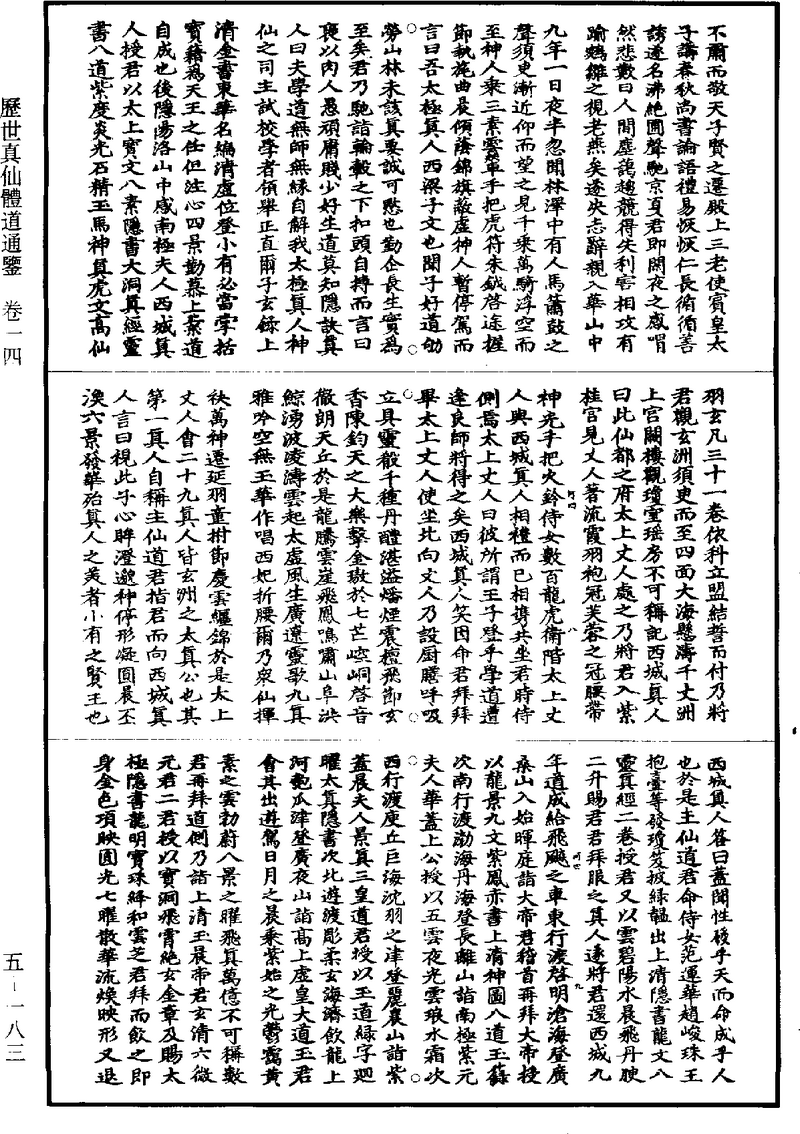 歷世真仙體道通鑒 卷一四
五-一八三
不爾而敬天子賢之遷殿上三老使賓皇太
子講春秋尚書論語禮易恢恢仁長循循善
誘遂名沸絕圈聲馳京夏君即閑夜之感喟
然悲歎曰人間塵藹趨競得失利害相攻有
踰鵷雛之視老鷰矣遂決志辭親入華山中
九年一日夜半忽聞林澤中有人馬簫鼓之
聲須臾漸近仰而望之見千乘萬騎浮空而
至神人乘三素雲輦手把虎符朱鉞啓途握
節執旄曲晨傾蔭錦旗蔽虛神人暫停駕而
言曰吾太極真人西梁子文也聞子好道劬
勞山林未該真要誠可愍也勤企長生實為
至矣君乃馳詣輪轂之下扣頭自搏而言曰
褒以肉人愚頑庸賤少好生道莫知隱訣真
人曰夫學道無師無緣自解我太極真人神
仙之司主試校學者領舉正直爾子玄錄上
清金書東華名編清虛位登小有必當掌括
寶籍為天王之任但注心四景勤慕上業道
自成也後隱陽洛山中感南極夫人西城真
人授君以太上寶文八素隱書大洞真經靈
書八道紫度炎光石精玉馬神真虎文高仙
羽玄凡三十一卷依科立盟結誓而付乃將
君觀玄洲須臾而至四面大海懸濤千丈洲
上宮闕樓觀瓊室瑤房不可稱記西城真人
曰此仙都之府太上丈人處之乃將君入紫
桂宮見丈人著流霞羽袍冠芙蓉之冠腰帶
神光手把火鈴侍女數百龍虎衛階太上丈
人與西城真人相禮而已相携共坐君時侍
側焉太上丈人曰彼所謂王子登乎學道遭
逢良師將得之矣西城真人笑因命君拜拜
畢太上丈人使坐北向丈人乃設厨膳呼吸
立具靈殽千種丹醴湛溢燔煙震檀飛節玄
香陳鈞天之大樂擊金璈於七芒崆峒啓音
徹朗天丘於是龍騰雲崖飛鳳鳴嘯山阜洪
鯨湧波凌濤雲起太虛風生廣遼靈歌九真
雅吟空無玉華作唱西妃折腰爾乃衆仙揮
袂萬神遷延羽童拊節慶雲纒錦於是太上
丈人會二十九真人皆玄洲之太真公也其
第一真人自稱主仙道君指君而向西城真
人言曰視此子心眸澄邈神停形凝圓晨丕
渙六景發華殆真人之美者小有之賢王也
西城真人答曰蓋聞性發乎天而命成乎人
也於是主仙道君命侍女范運華趙峻珠王
抱臺等發瓊笈披綠韞出上清隱書龍文八
靈真經二卷授君又以雲碧陽水晨飛丹腴
二升賜君君拜服之真人遂將君還西城九
年道成給飛飈之車東行渡啓明滄海登廣
桑山入始暉庭詣大帝君稽首再拜大帝授
以龍景九文紫鳳赤書上清神圖八道玉籙
次南行渡渤海丹海登長離山詣南極紫元
夫人華蓋上公授以五雲夜光雲琅水霜次
西行渡庚丘巨海沈羽之津登麗農山詣紫
蓋晨夫人景真三皇道君授以玉道綠字迴
曜太真隱書次北遊渡彫柔玄海濟飲龍上
河匏瓜津登廣夜山詣高上虛皇大道玉君
會其出遊駕日月之晨乘紫始之光鬱藹黃
素之雲勃蔚八景之曜飛真萬億不可稱數
君再拜道側乃詣上清玉晨帝君玄清六微
元君二君授以寶洞飛霄絕玄金章及賜太
極隱書龍明寶珠絳和雲芝君拜而飲之即
身金色項映圓光七曜散華流煥映形又退